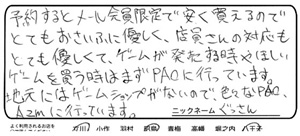 予約するとメール会員限定で安く買えるので
とてもおさいふに優しく、店員さんの対応も
とても優しくて、ゲームが発売する時やほしい
ゲームを買う時はまずPAOに行っています。
地元にはゲームショップがないので色々なPAO、
Azmに行っています。
ニックネーム ぐっさん
よく利用される店舗を
小作 羽村 青梅 高幡 堀之内 八王子